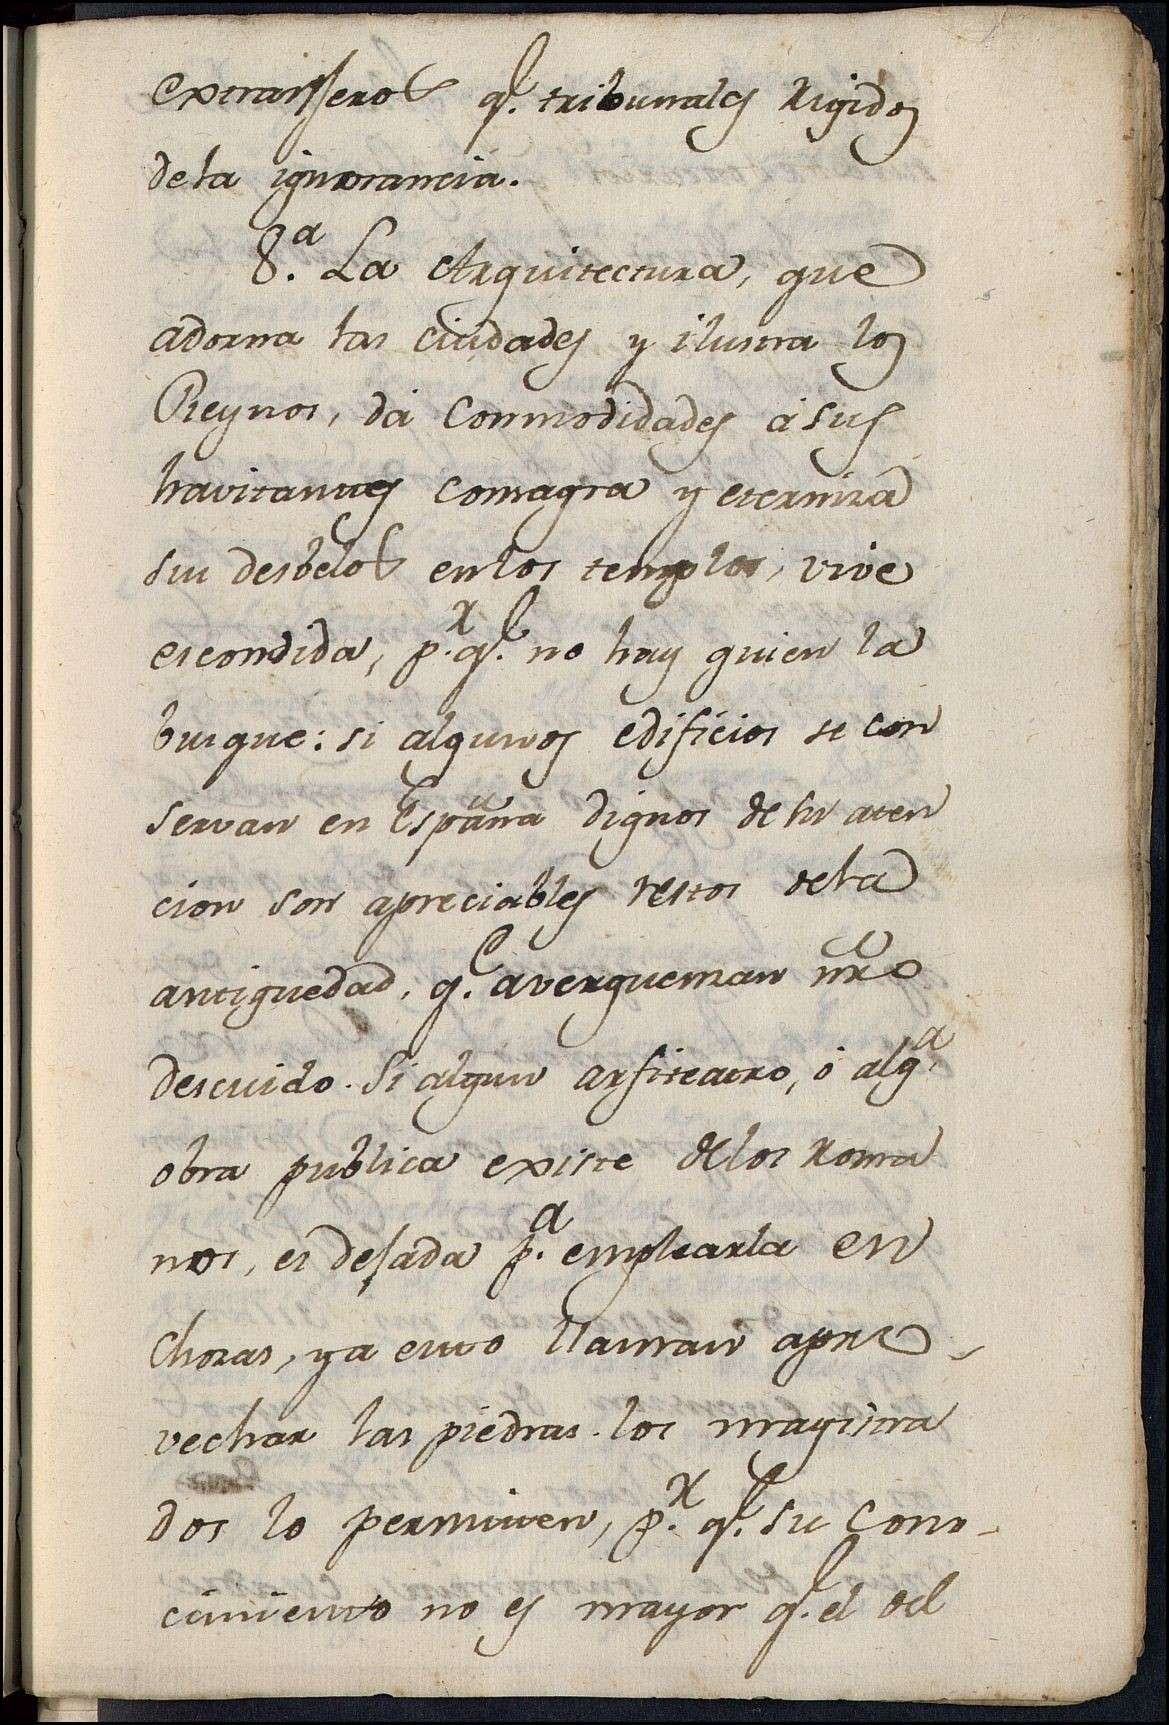 extranjeros q.e tribunales rigidos
de la ignorancia.
8.a La Arquitectura, que
adorna las ciudades y ilustra los
Reynos, dá conmodidades á sus
havitantes consagra y eterniza
sus desbelos en los templos, vive
escondida, p.r q.e no hay quien la
busque: si algunos edificios se con
servan en España dignos de su aten
cion son apreciables restos de la
antiguedad, q.e averguenzan nro
descuido. Si algun anfiteatro, ó alg.a
obra publica existe de los Roma
nos, es dejada p.a emplearla en
chozas, ya esto llaman apro-
vechar las piedras. los magistra
dos lo permiten, p.r q.e su cono-
cimiento no es mayor q.e el del